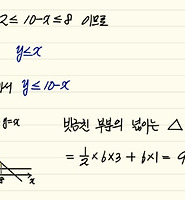 2≤ 10-x ≤8 이므로
y≤x
서 y≤10-x
y=x
빗금친 부분의 넓이는 △
= 1/2 × 6 × 3 + 6 × 1 = 9
8 x